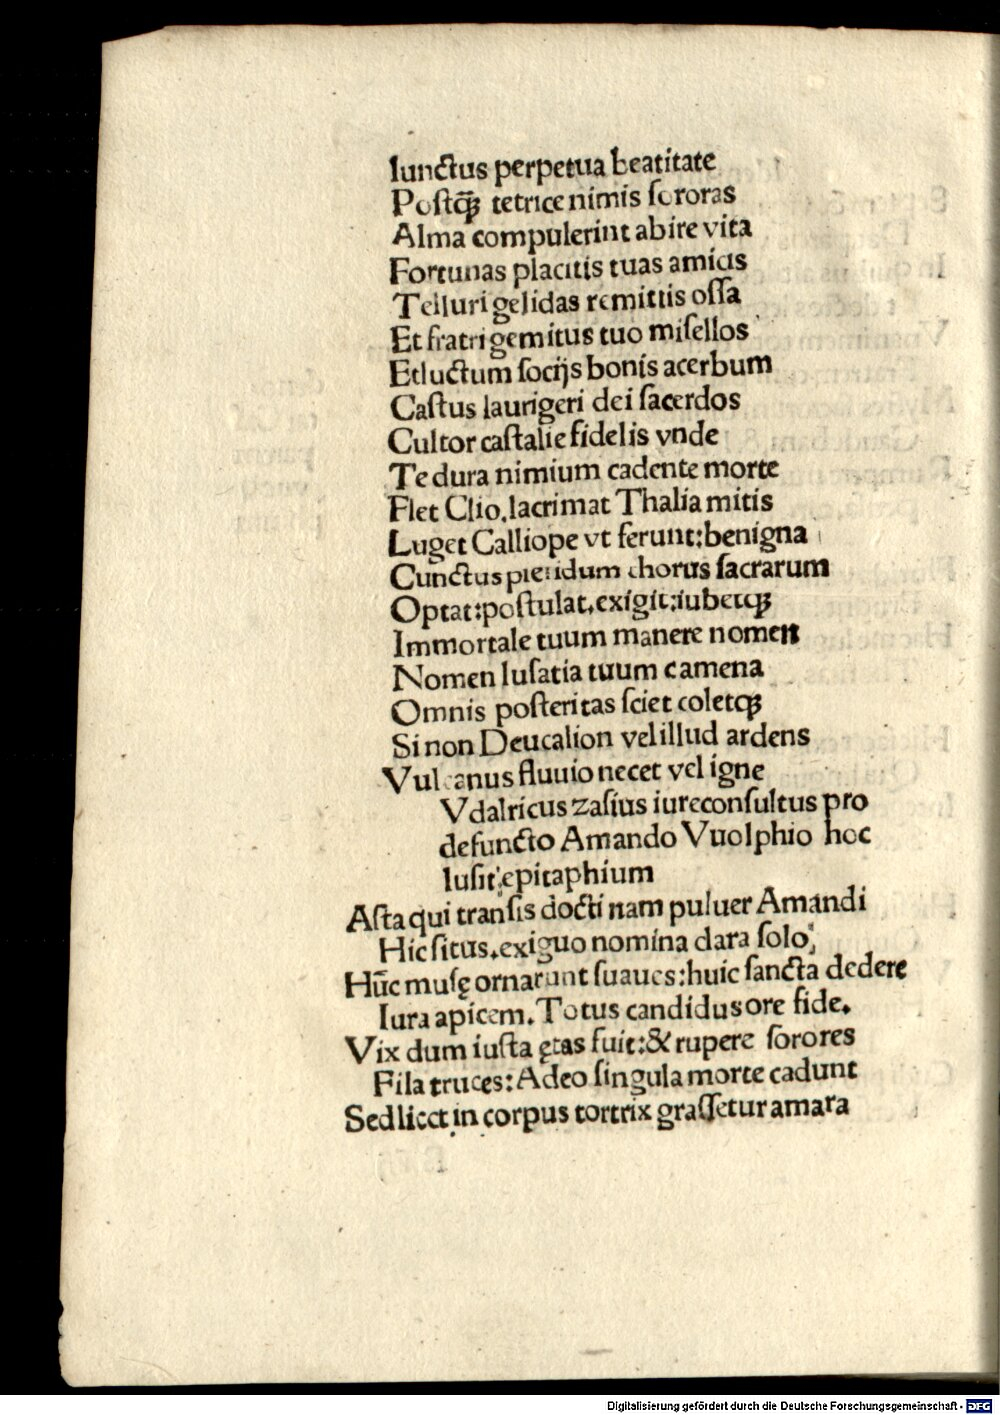 Iunctus perpetua beatitate
Postqꝫ̃ tetrice nimis ſororas
Alma compulerint abire vita
Fortunas placitis tuas amicis
Telluri gelidas remittis oſſa
Et fratri gemitus tuo miſellos
Et luctum ſocijs bonis acerbum
Caſtus laurigeri dei ſacerdos
Cultor caſtalie fidelis vnde
Te dura nimium cadente morte
Flet Clio.lacrimat Thalia mitis
Luget Calliope vt ferunt:benigna
Cunctus pieridum chorus ſacrarum
Optat:poſtulat.exigit:iubetqꝫ
Immortale tuum manere nomen
Nomen luſatia tuum camena
Omnis poſteritas ſciet coletqꝫ
Si non Deucalion vel illud ardens
Vulcanus fluuio necet vel igne
Vdalricus zaſius iureconſultus pro
defuncto Amando Vuolphio hoc
luſit epitaphium
Aſta qui tranſis docti nam puluer Amandi
Hic ſitus.exiguo nomina clara ſolo
Hūc muſę ornarunt ſuaues:huic ſancta dedere
Iura apicem.Totus candidus ore fide.
Vix dum iuſta ętas fuit:& rupere ſorores
Fila truces:Adeo ſingula morte cadunt
Sed licet in corpus tortrix graſſetur amara
Digitalisierung gefördert durch die Deutsche Forschungsgemeinschaft - DFG